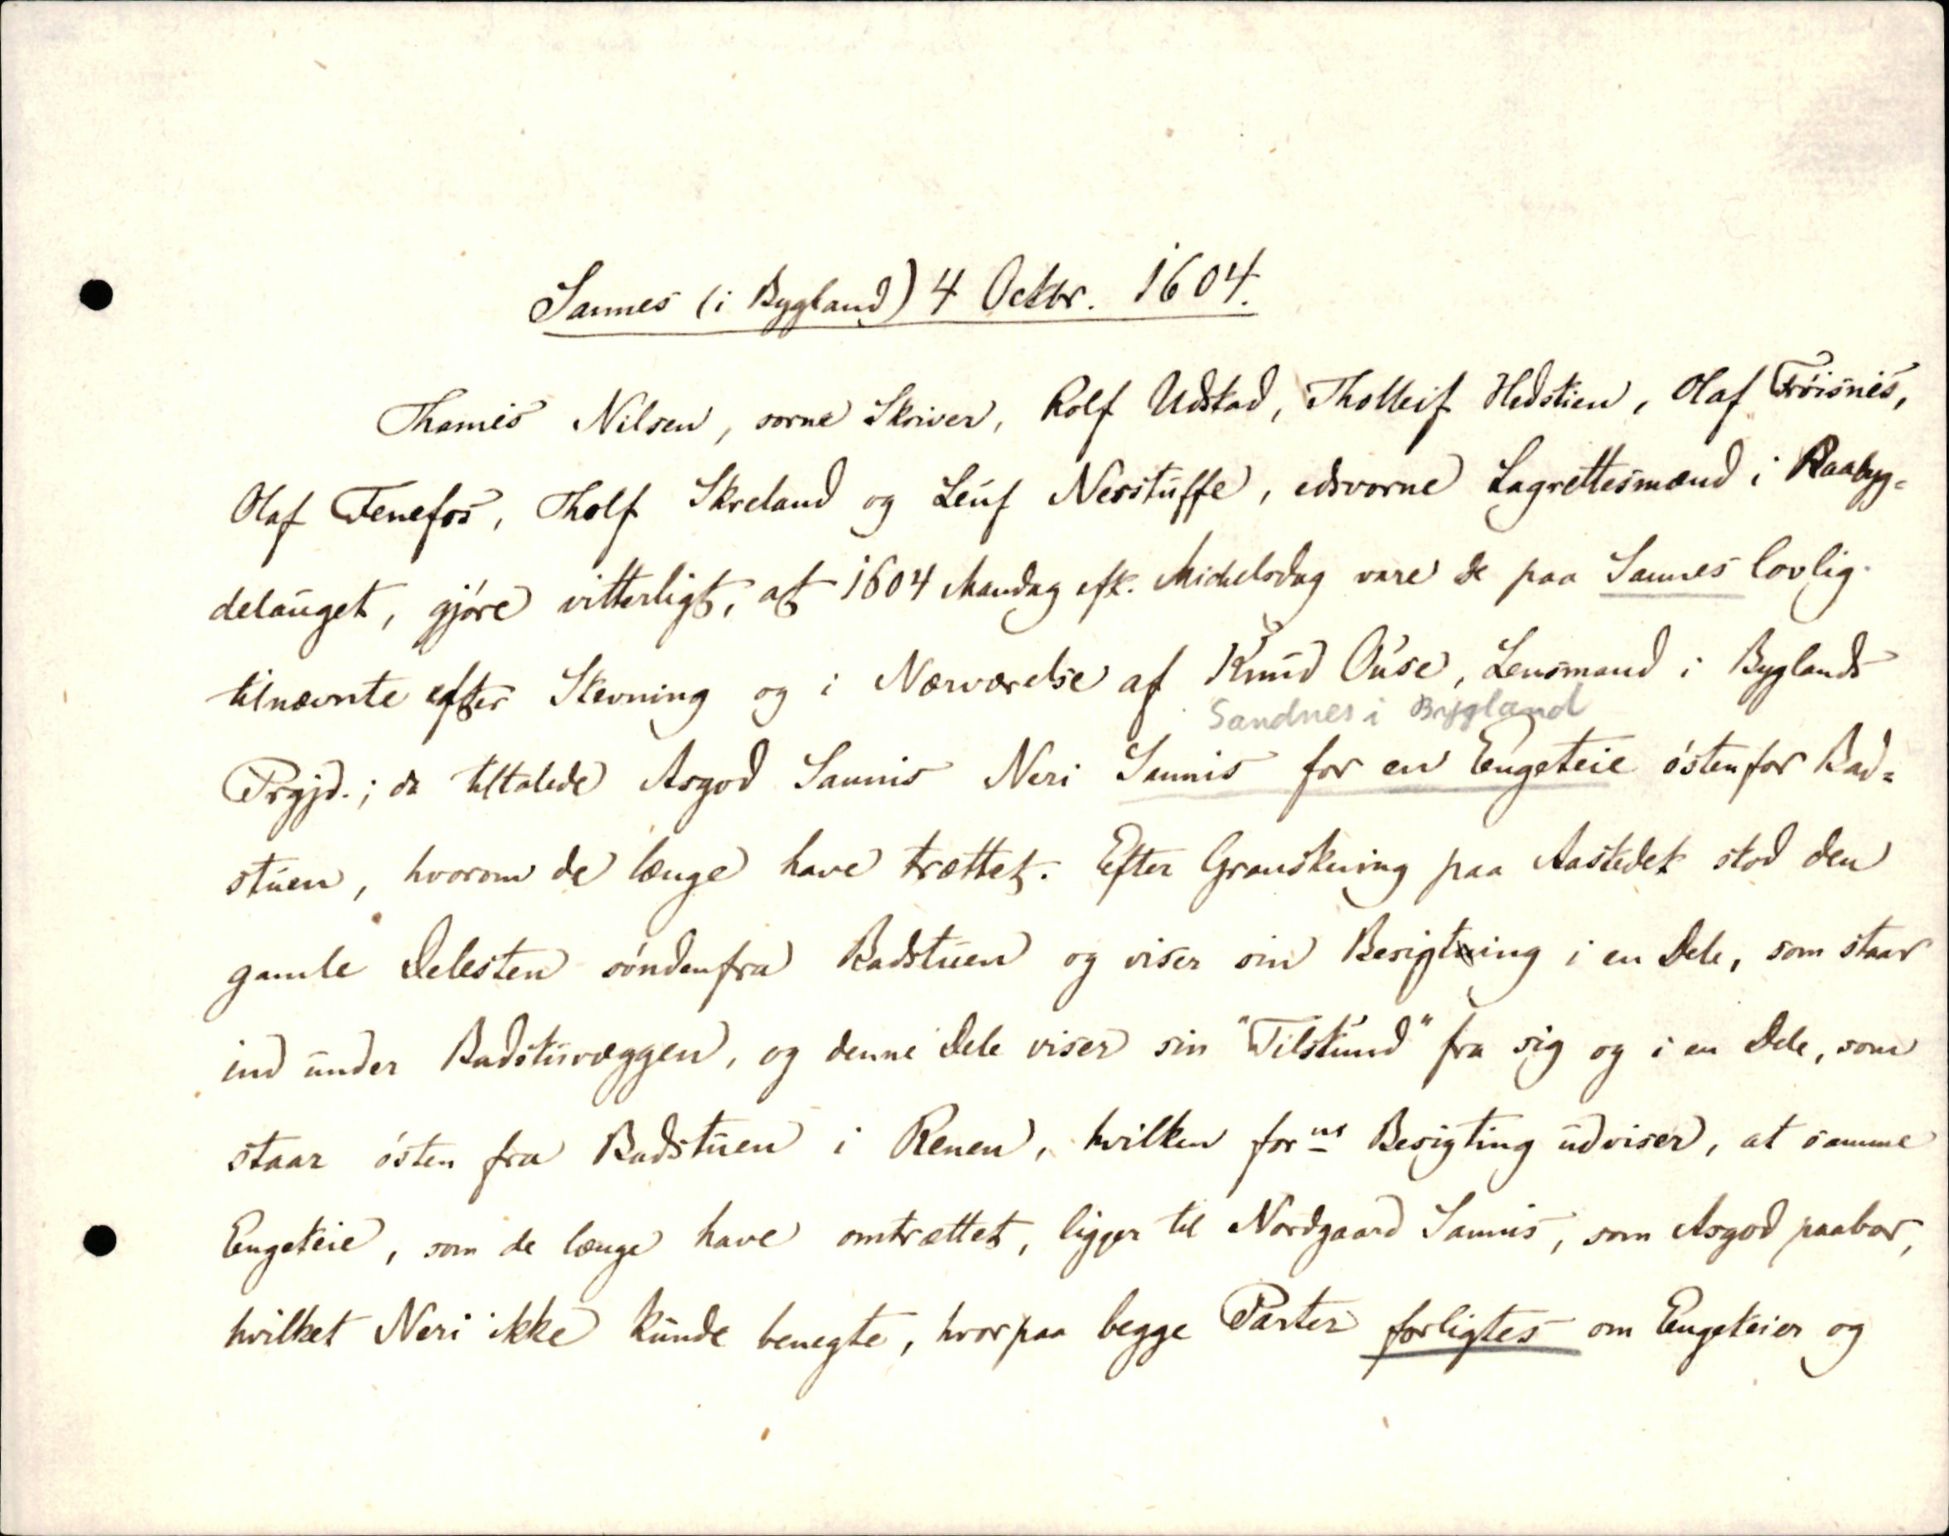 Sannes (i Bygland) 4 Octbr. 1604.
Thamis Nilsen, sorne Skriver, Rolf Udstad, Tholleif Hedstien, Olaf Frøisnes,
Olaf Tenefos, Tholf Skreland og Leuf Nesstuffe, edsvorne Lagrettesmænd i Raabyg-
delauget, gjøre vitterligt, at 1604 Mandag eft. Michelsdag vare de paa Sannes lovlig
tilnævnte efter Stevning og i Nærværelse af Knud Ouse, Lensmand i Byglands
Sandnes i Bygland
Prgjd.; da tiltalede Asgod Sannis Neri Sannis for en Engeteie østenfor Bad-
stuen, hvorom de længe have trættet. Efter Granskning paa Aastedet stod den
gamle Delesten søndenfra Badstuen og viser sin Besigting i en Dele, som staar
ind under Badstuvæggen, og denne Dele viser sin "Tilstund" fra sig og i en Dele, som
staar østen fra Badstuen i Renen, hvilken forne Besigting udviser, at samme
Engeteie, som de længe have omtrættet, ligger til Nordgaard Sannis, som Asgod paabor,
hvilket Neri ikke kunde benegte, hvorpaa begge Parter forligtes om Engeteier og